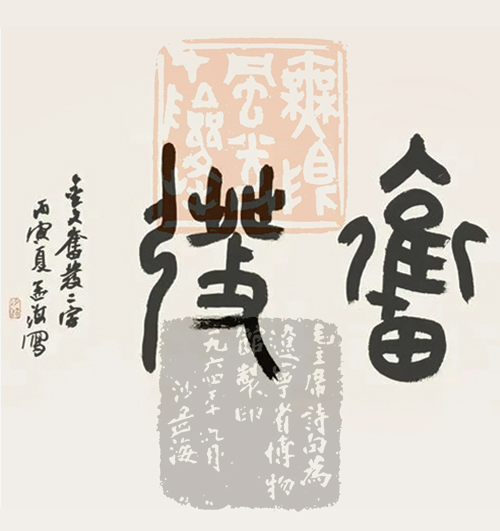 奮發
金文奮發二字
丙寅夏孟海寫
無限
風光
在險峰
毛主席詩句為
遼寧省博物
館製印
一九六四年九月
沙孟海